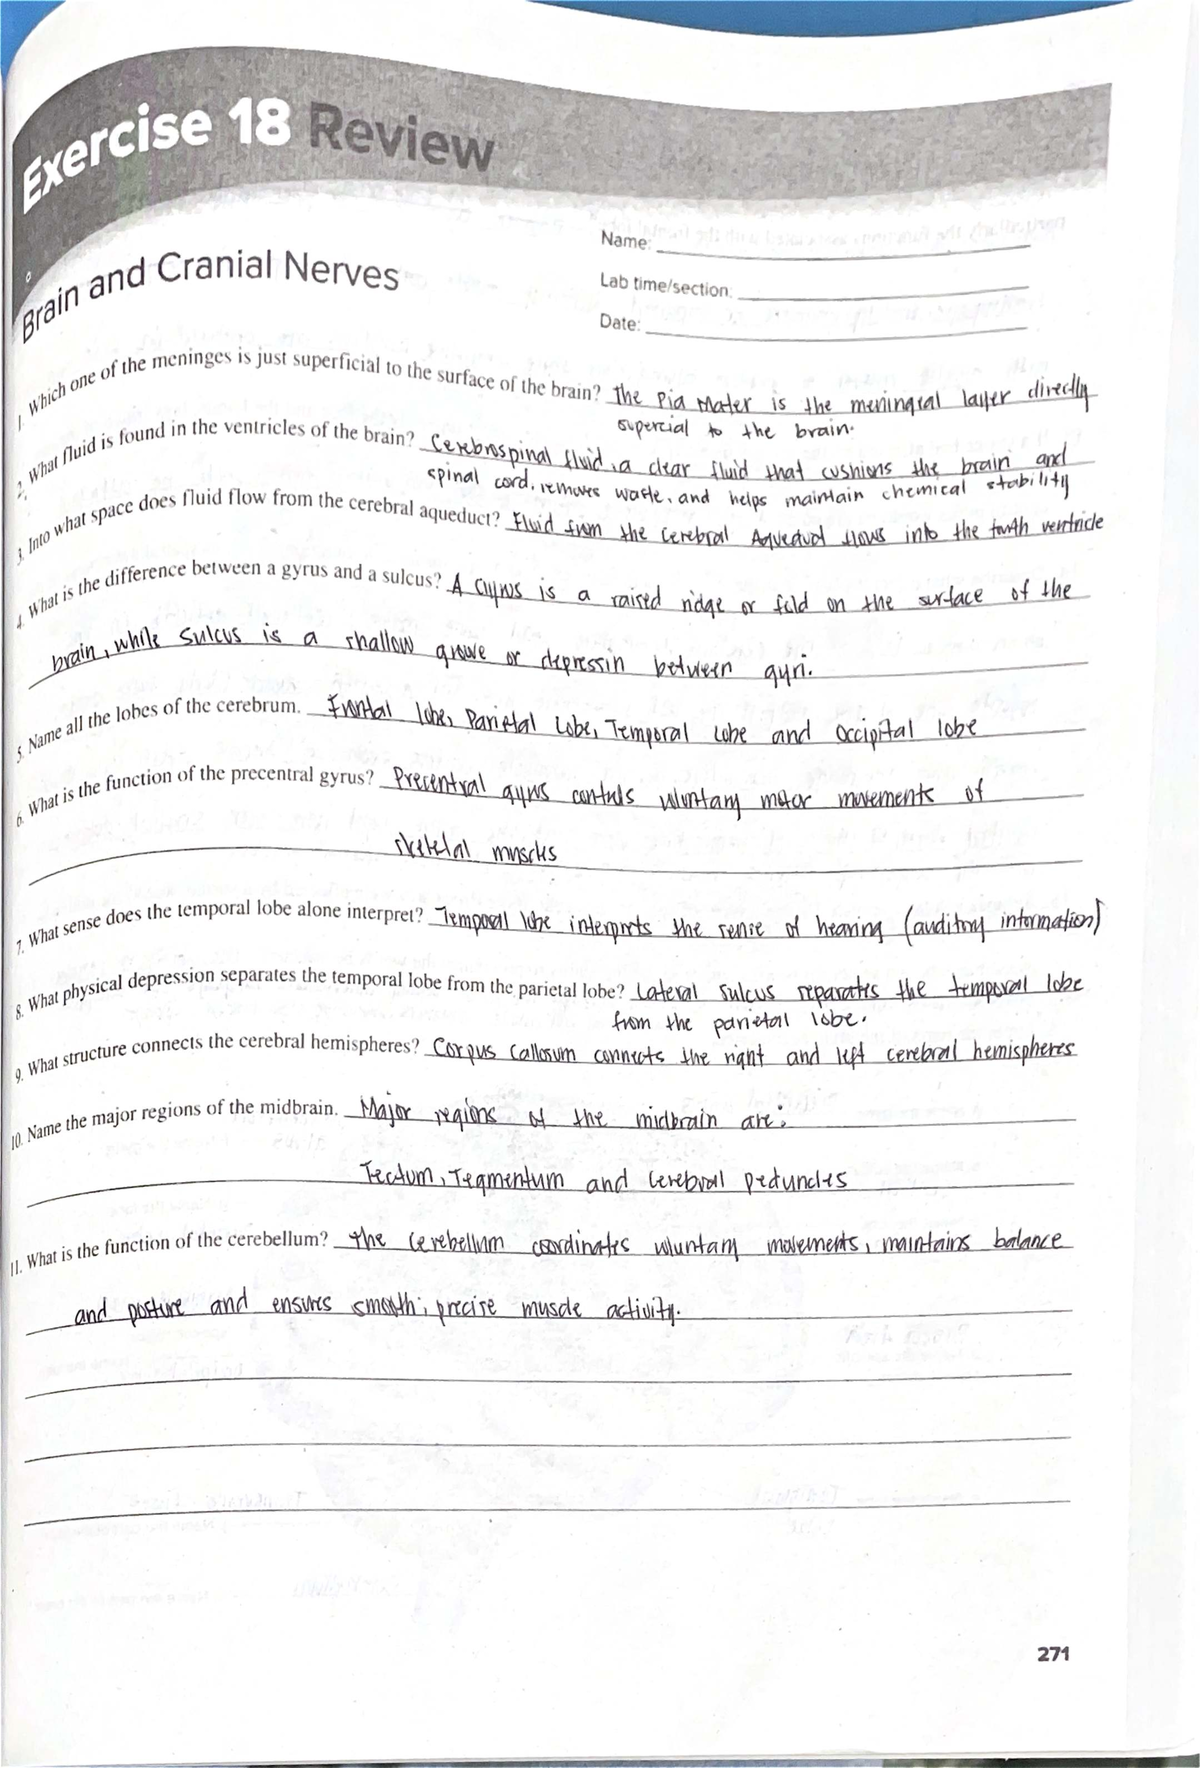 Exercise 18 Review
Brain and Cranial Nerves
Name:
Lab time/section:
Date:
1. Which one of the meninges is just superficial to the surface of the brain? The Pia Mater is the meningeal layer directly
supercial to the brain.
2. What fluid is found in the ventricles of the brain? Cerebrospinal fluid, a clear fluid that cushions the brain and
spinal cord, removes waste, and helps maintain chemical stability
3. Into what space does fluid flow from the cerebral aqueduct? Fluid from the cerebral Aqueduct flows into the fourth ventricle
4. What is the difference between a gyrus and a sulcus? A Gyrus is a raised ridge or fold on the surface of the
brain, while Sulcus is a shallow groove or depressin between gyri.
5. Name all the lobes of the cerebrum. Frontal lobe, Parietal Lobe, Temporal Lobe and Occipital lobe
6. What is the function of the precentral gyrus? Precentral gyrus controls voluntary motor movements of
skeletal muscles
7. What sense does the temporal lobe alone interpret? Temporal lobe interprets the sense of hearing (auditory information)
8. What physical depression separates the temporal lobe from the parietal lobe? Lateral sulcus separates the temporal lobe
from the parietal lobe.
9. What structure connects the cerebral hemispheres? Corpus Callosum connects the right and left cerebral hemispheres
10. Name the major regions of the midbrain. Major regions of the midbrain are:
Tectum, Tegmentum and Cerebral Peduncles
11. What is the function of the cerebellum? The Cerebellum coordinates voluntary movements, maintains balance
and posture and ensures smooth, precise muscle activity.
271